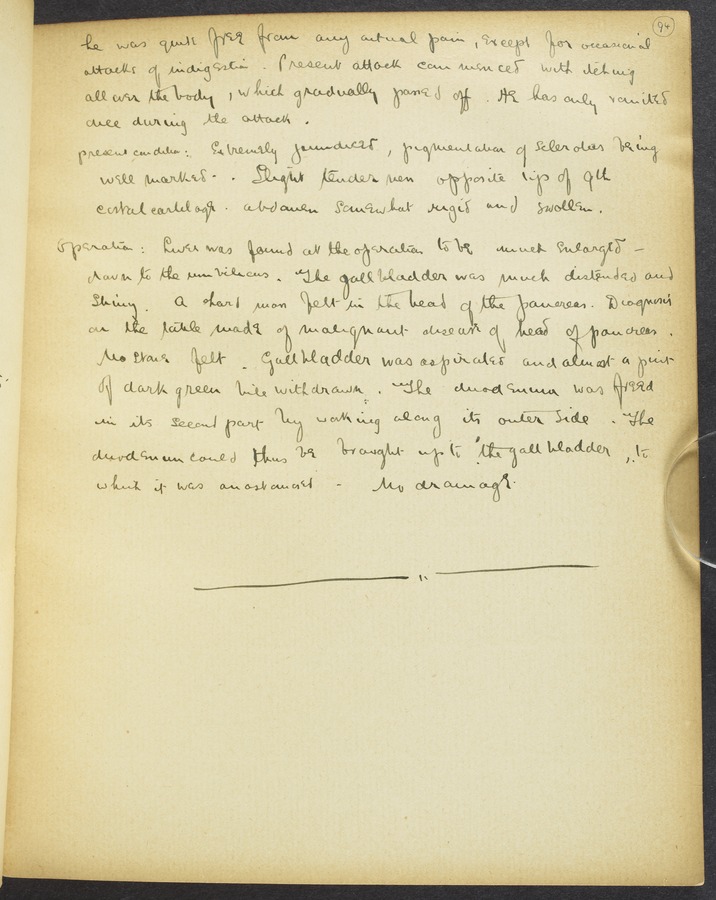 94
he was quite free from any actual pain, except for occasional
attacks of indigestion. Present attack commenced with itching
all over the body, which gradually passed off. He has only vomited
once during the attack.
present condition: Extremely jaundiced, pigmentation of sclerotics being
well marked. Slight tenderness opposite tip of 9th
costal cartilage. abdomen somewhat rigid and swollen.
Operation: Liver was found at the operation to be much enlarged –
down to the umbilicus. The gall bladder was much distended and
shiny. A hard mass felt in the head of the pancreas. Diagnosis
on the table made of malignant disease of head of pancreas.
No stone felt. Gall bladder was aspirated and almost a pint
of dark green bile withdrawn. The duodenum was freed
in its second part by working along its outer side. The
duodenum could thus be brought up to the gall bladder, to
which it was anastomosed - No drainage.